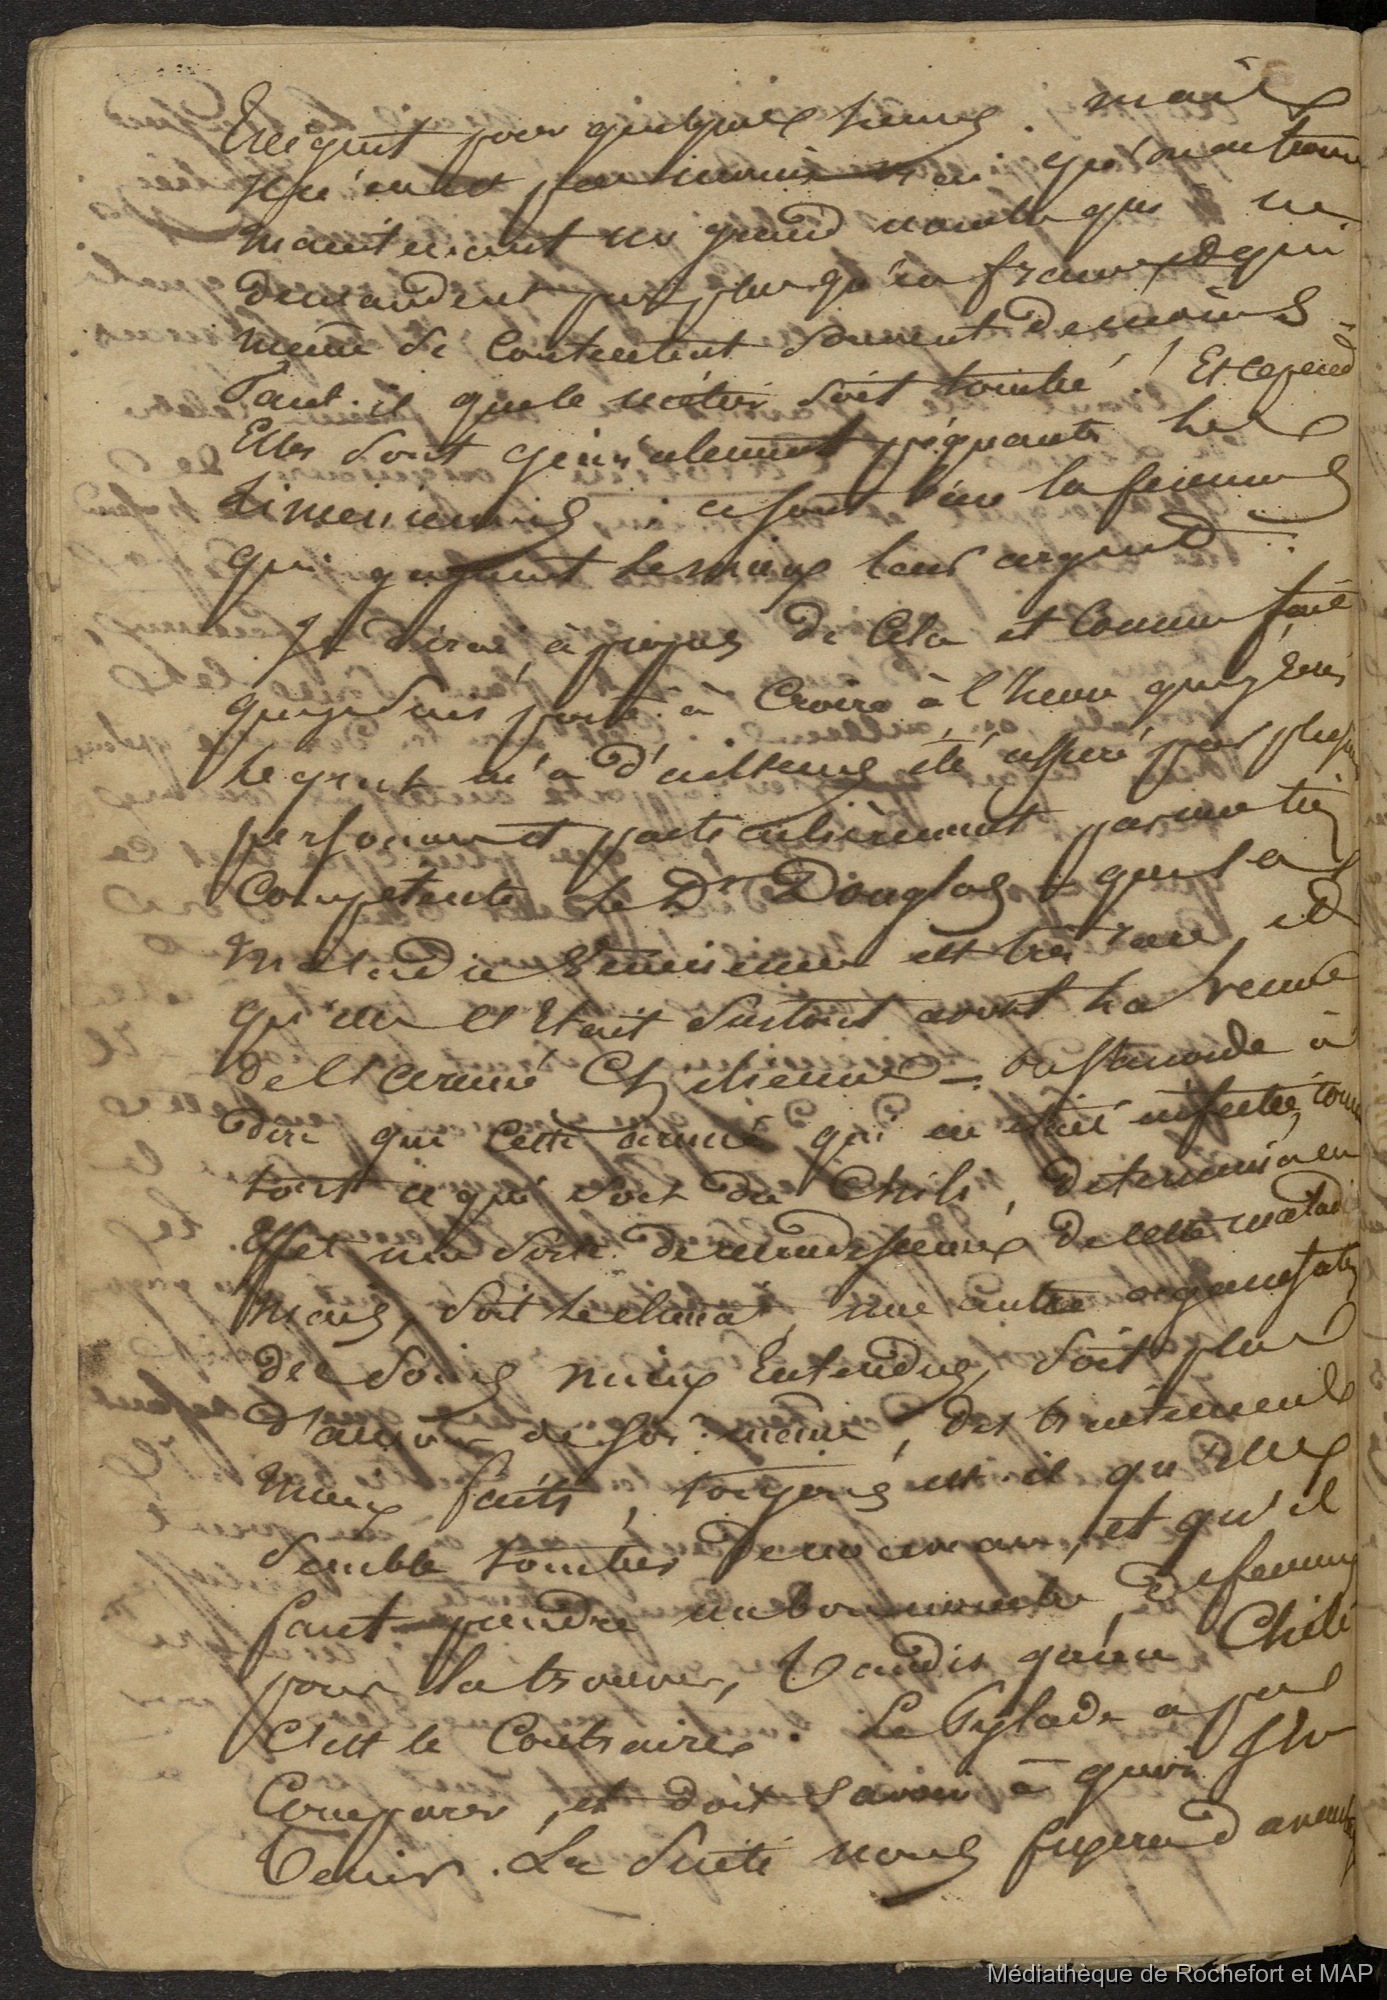 exigent pour quelques heures. mais
il n'en est pas moins vrai qu'on en trouve
maintenant un grand nombre qui ne
demandent pas plus qu'en france et qui
même se contentent souvent de moins
faut-il que le métier soit tombé ! Et cepend
Elles sont généralement piquantes les
Liméniennes ; ce sont bien les femmes
qui gagnent le mieux leur argent.
Je dirai, à propos de cela et comme fait
que je suis porté à croire à l'heure qu'il est
le quel m'a d'ailleurs été assuré par plusieurs
personnes et particulièrement par un très
compétent le Dr Douglas, que la
maladie vénérienne est très rare, et
qu'elle l'était surtout avant la venue
de l'armée Chilienne. On s'accorde à
dire que cette armée qui en était infectée, comme
tout ce qui sort du Chili, détermina en
effet une sorte de recrudescence de cette maladie
mais, soit le climat, une autre organisation
des soins mieux entendus, soit plus
d'amour de soi-même, des traitements
mieux faits, toujours est-il qu'elle
semble tomber de nouveau, et qu'il
faut prendre un bon nombre de femmes
pour la trouver, tandis qu'au Chili
c'est le contraire. Le Pylade a pu
comparer, et doit savoir à quoi s'en
tenir. La suite nous fixera d'avantage
Médiathèque de Rochefort et MAP